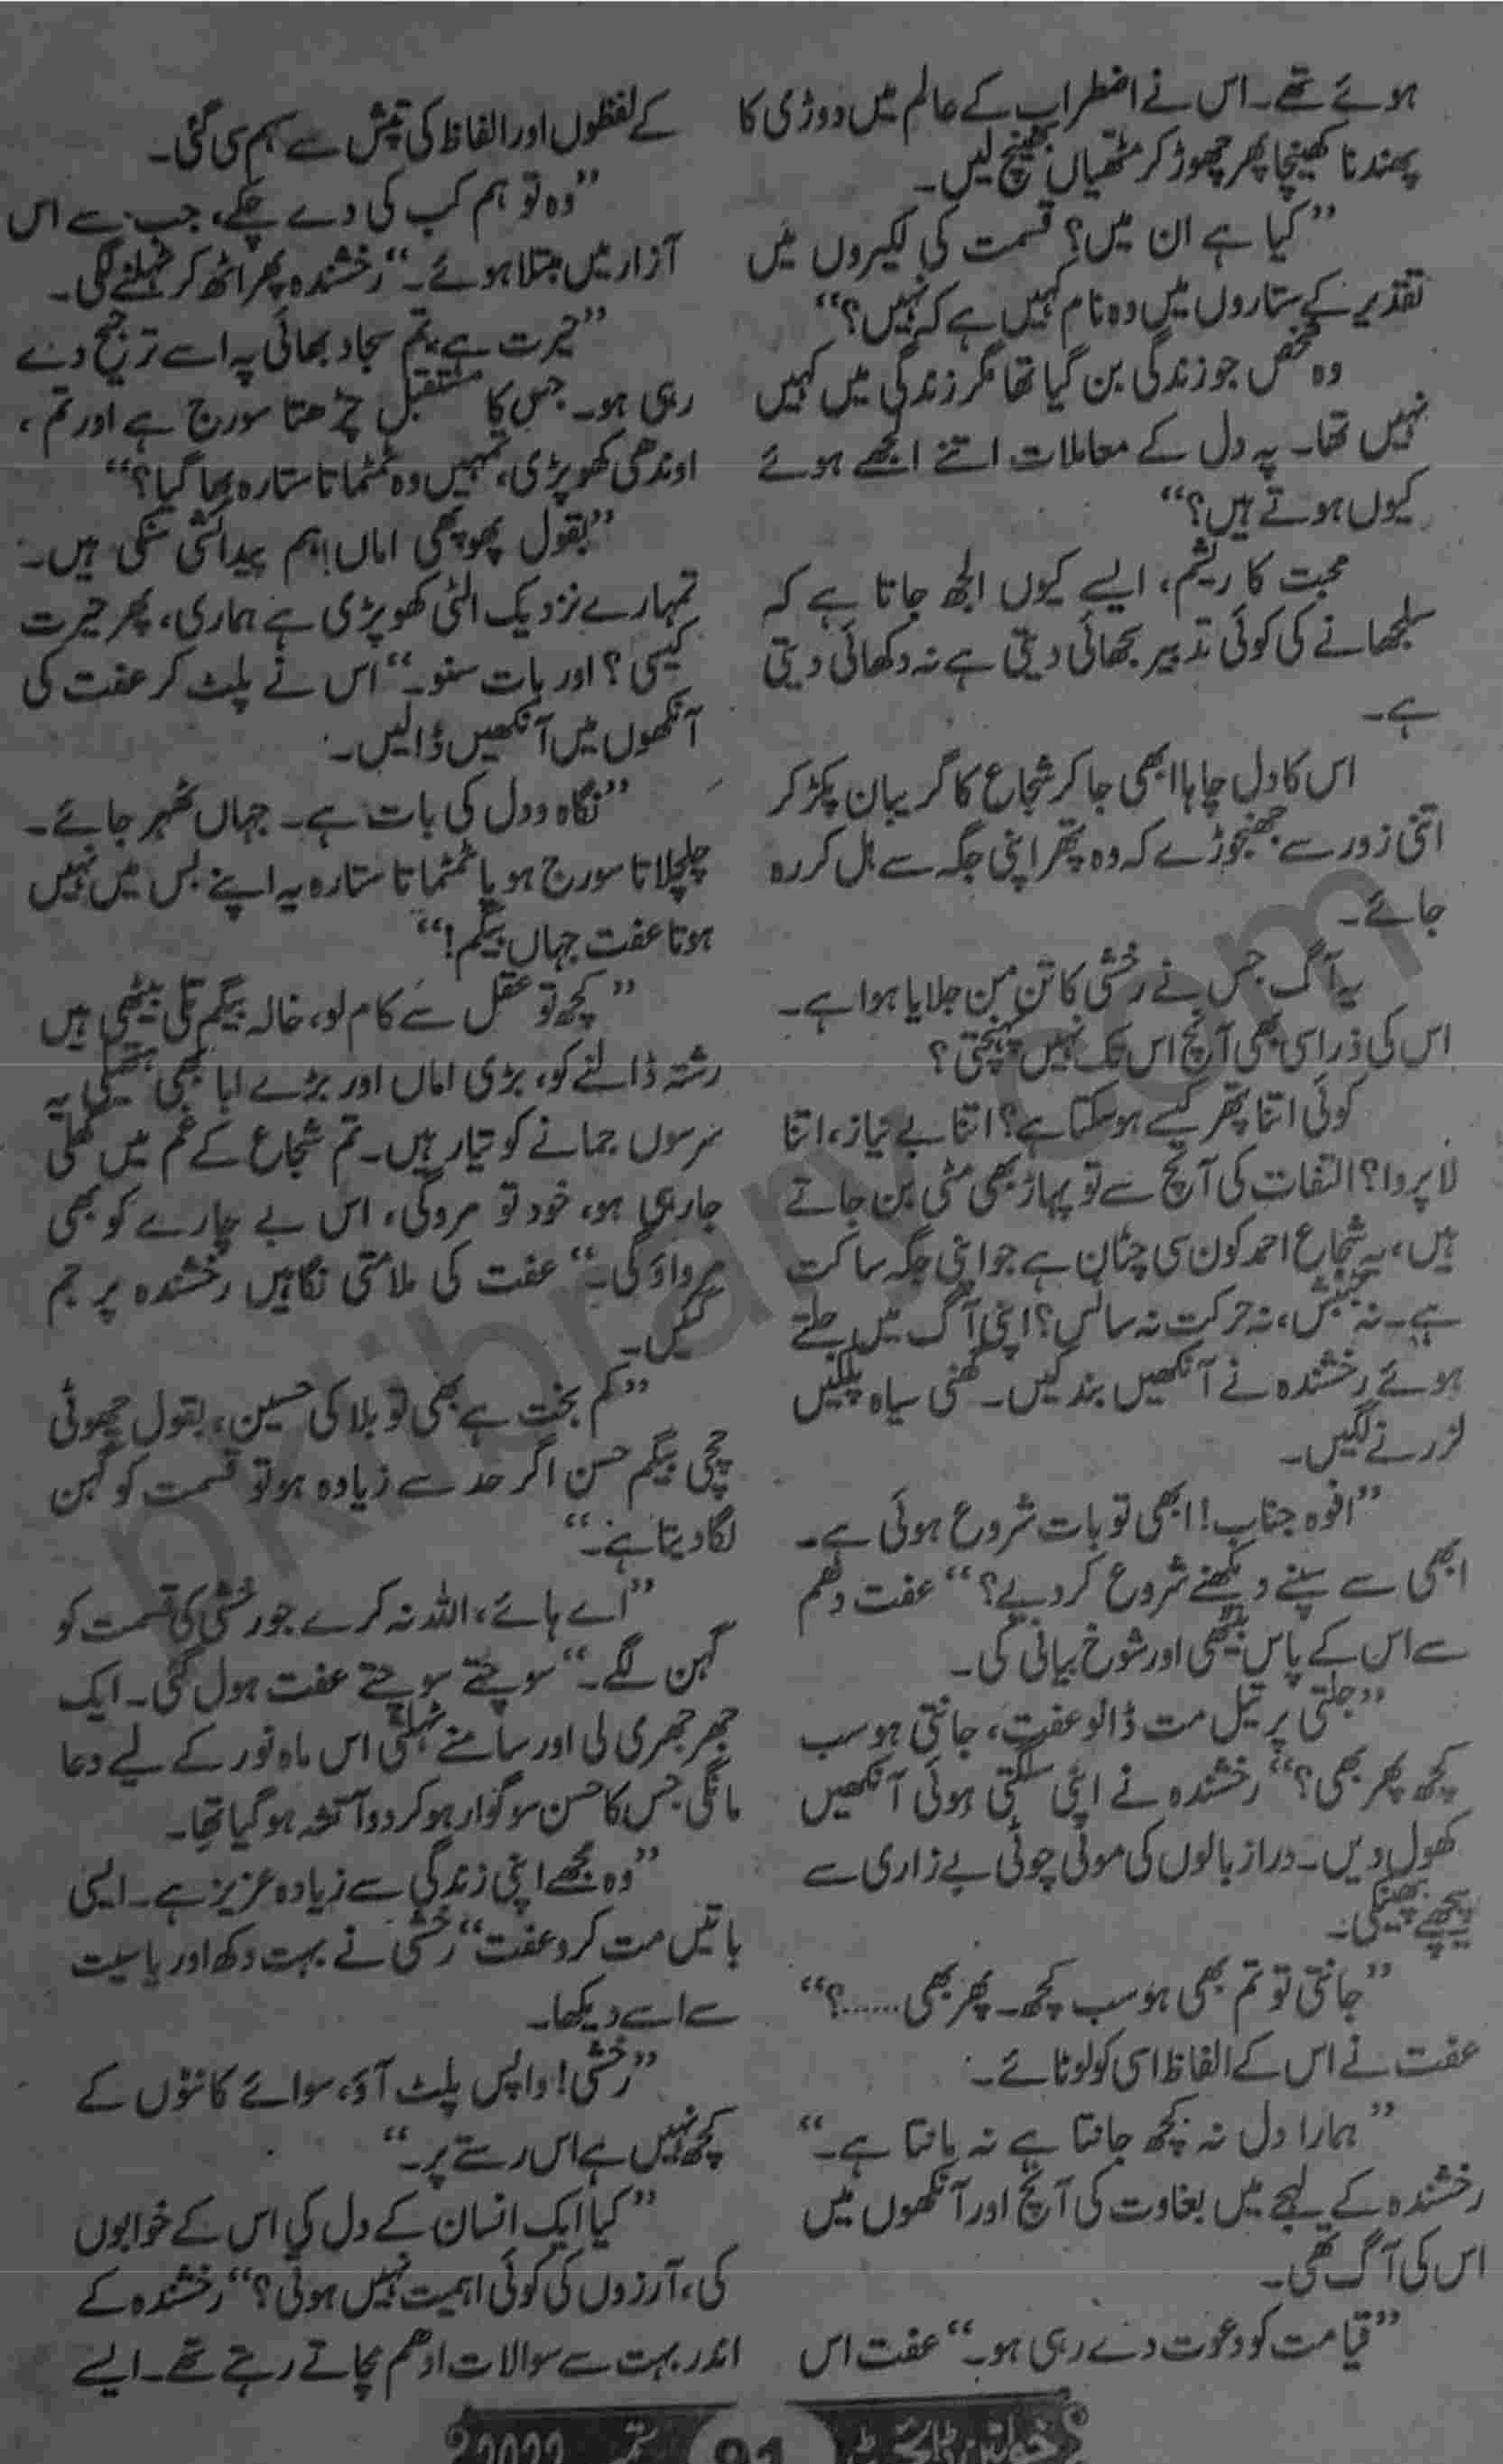 ہوئے تھے۔ اس نے اضطراب کے عالم میں دوڑی کا
پھندنا کھینچا پھر چھوڑ کر مٹھیاں بھینچ لیں۔
”کیا ہے ان میں؟ قسمت کی لکیروں میں
تقدیر کے ستاروں میں وہ نام کہیں ہے کہ نہیں؟“
وہ شخص جو زندگی بن گیا تھا مگر زندگی میں کہیں
نہیں تھا۔ یہ دل کے معاملات اتنے الجھے ہوئے
کیوں ہوتے ہیں؟“
محبت کا ریشم، ایسے کیوں الجھ جاتا ہے کہ
سلجھانے کی کوئی تدبیر سجھائی دیتی ہے نہ دکھائی دیتی
ہے۔
اس کا دل چاہا ابھی جا کر شجاع کا گریبان پکڑ کر
اتنی زور سے جھنجوڑے کہ وہ پتھر اپنی جگہ سے ہل کر رہ
جائے۔
یہ آگ جس نے رخشی کا تن من جلایا ہوا ہے۔
اس کی ذرا سی بھی آنچ اس تک نہیں پہنچتی؟
کوئی اتنا پتھر کیسے ہو سکتا ہے؟ اتنا بے نیاز، اتنا
لا پروا؟ التفات کی آنچ سے تو پہاڑ بھی مٹی بن جاتے
ہیں، یہ شجاع احمد کون سی چٹان ہے جو اپنی جگہ ساکت
ہے۔ نہ جنبش، نہ حرکت نہ سانس؟ اپنی آگ میں جلتے
ہوئے رخشندہ نے آنکھیں بند کیں۔ گھنی سیاہ پلکیں
لرزنے لگیں۔
”افوہ جناب! ابھی تو بات شروع ہوئی ہے۔
ابھی سے سپنے دیکھنے شروع کر دیے؟“ عفت دھم
سے اس کے پاس بیٹھی اور شوخ بیانی کی۔
”جلتی پر تیل مت ڈالو عفت، جانتی ہو سب
کچھ پھر بھی؟“ رخشندہ نے اپنی سلگتی ہوئی آنکھیں
کھول دیں۔ دراز بالوں کی موٹی چوٹی بے زاری سے
پیچھے پھینکی۔
”جانتی تو تم بھی ہو سب کچھ۔ پھر بھی ......؟“
عفت نے اس کے الفاظ اسی کو لوٹائے۔
”ہمارا دل نہ کچھ جانتا ہے نہ مانتا ہے۔“
رخشندہ کے لہجے میں بغاوت کی آنچ اور آنکھوں میں
اس کی آگ تھی۔
”قیامت کو دعوت دے رہی ہو۔“ عفت اس
کے لفظوں اور الفاظ کی تپش سے سہم سی گئی۔
”وہ تو ہم کب کی دے چکے، جب سے اس
آزار میں مبتلا ہوئے۔“ رخشندہ پھر اٹھ کر ٹہلنے لگی۔
”حیرت ہے، تم سجاد بھائی پہ اسے ترجیح دے
رہی ہو۔ جس کا مستقبل چڑھتا سورج ہے اور تم،
اوندھی کھوپڑی، تمہیں وہ ٹمٹماتا ستارہ بھا گیا؟“
”بقول پھوپھی اماں! ہم پیدائشی سنکی ہیں۔
تمہارے نزدیک الٹی کھوپڑی ہے ہماری، پھر حیرت
کیسی؟ اور بات سنو۔“ اس نے پلٹ کر عفت کی
آنکھوں میں آنکھیں ڈالیں۔
”نگاہ و دل کی بات ہے۔ جہاں ٹھہر جائے۔
چلچلاتا سورج ہو یا ٹمٹماتا ستارہ یہ اپنے بس میں نہیں
ہوتا عفت جہاں بیگم!“
”کچھ تو عقل سے کام لو، خالہ بیگم تلی بیٹھی ہیں
رشتہ ڈالنے کو، بڑی اماں اور بڑے ابا بھی ہتھیلی پہ
سرسوں جمانے کو تیار ہیں۔ تم شجاع کے غم میں گھلی
جا رہی ہو، خود تو مرو گی، اس بے چارے کو بھی
مرواؤ گی۔“ عفت کی ملامتی نگاہیں رخشندہ پر جم
گئیں۔
”کم بخت ہے بھی تو بلا کی حسین، بقول چھوٹی
چچی بیگم حسن اگر حد سے زیادہ ہو تو قسمت کو گہن
لگا دیتا ہے۔“
”اے ہائے، اللہ نہ کرے جو رخشی کی قسمت کو
گہن لگے۔“ سوچتے سوچتے عفت ہول گئی۔ ایک
جھرجھری لی اور سامنے ٹہلتی اس ماہ نور کے لیے دعا
مانگی جس کا حسن سوگوار ہو کر دو آتشہ ہو گیا تھا۔
”وہ مجھے اپنی زندگی سے زیادہ عزیز ہے۔ ایسی
باتیں مت کرو عفت“ رخشی نے بہت دکھ اور یاسیت
سے اسے دیکھا۔
”رخشی! واپس پلٹ آؤ، سوائے کانٹوں کے
کچھ نہیں ہے اس رستے پر۔“
”کیا ایک انسان کے دل کی اس کے خوابوں
کی، آرزوں کی کوئی اہمیت نہیں ہوتی؟“ رخشندہ کے
اندر بہت سے سوالات ادھم مچاتے رہتے تھے۔ ایسے
خواتین ڈائجسٹ 91 ستمبر 2022ء
pklibrary.com